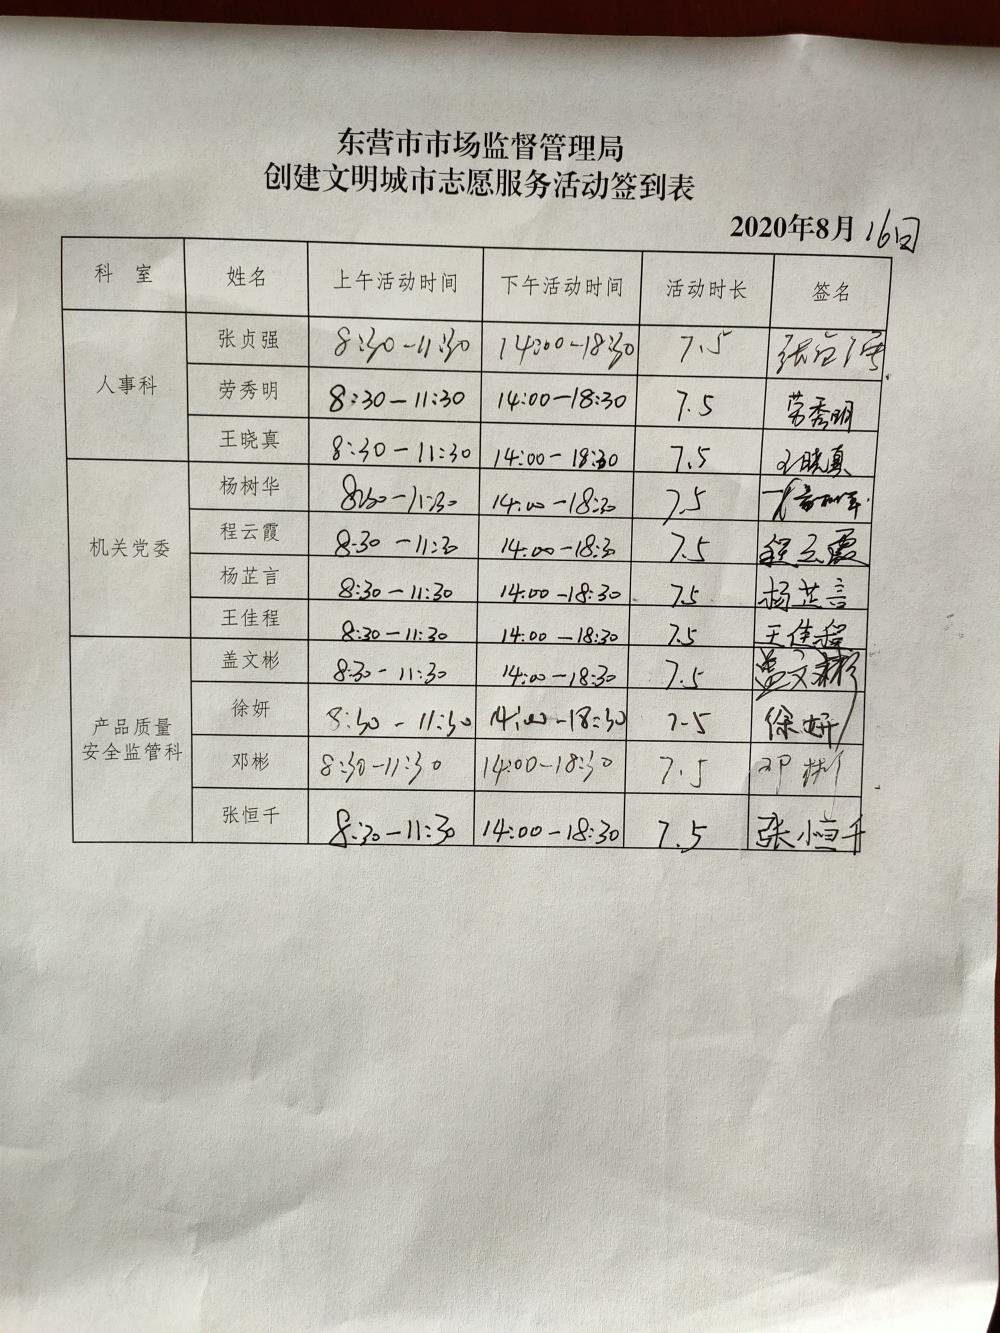 东营市市场监督管理局
创建文明城市志愿服务活动签到表
2020年8月16日
科 室 姓名 上午活动时间 下午活动时间 活动时长 签名
人事科
张贞强 8:30-11:30 14:00-18:30 7.5 张贞强
劳秀明 8:30-11:30 14:00-18:30 7.5 劳秀明
王晓真 8:30-11:30 14:00-18:30 7.5 王晓真
机关党委
杨树华 8:30-11:30 14:00-18:30 7.5
程云霞 8:30-11:30 14:00-18:30 7.5 程云霞
杨芷言 8:30-11:30 14:00-18:30 7.5 杨芷言
王佳程 8:30-11:30 14:00-18:30 7.5 王佳程
产品质量
安全监管科
盖文彬 8:30-11:30 14:00-18:30 7.5 盖文彬
徐妍 8:30-11:30 14:00-18:30 7.5 徐妍
邓彬 8:30-11:30 14:00-18:30 7.5 邓彬
张恒千 8:30-11:30 14:00-18:30 7.5 张恒千